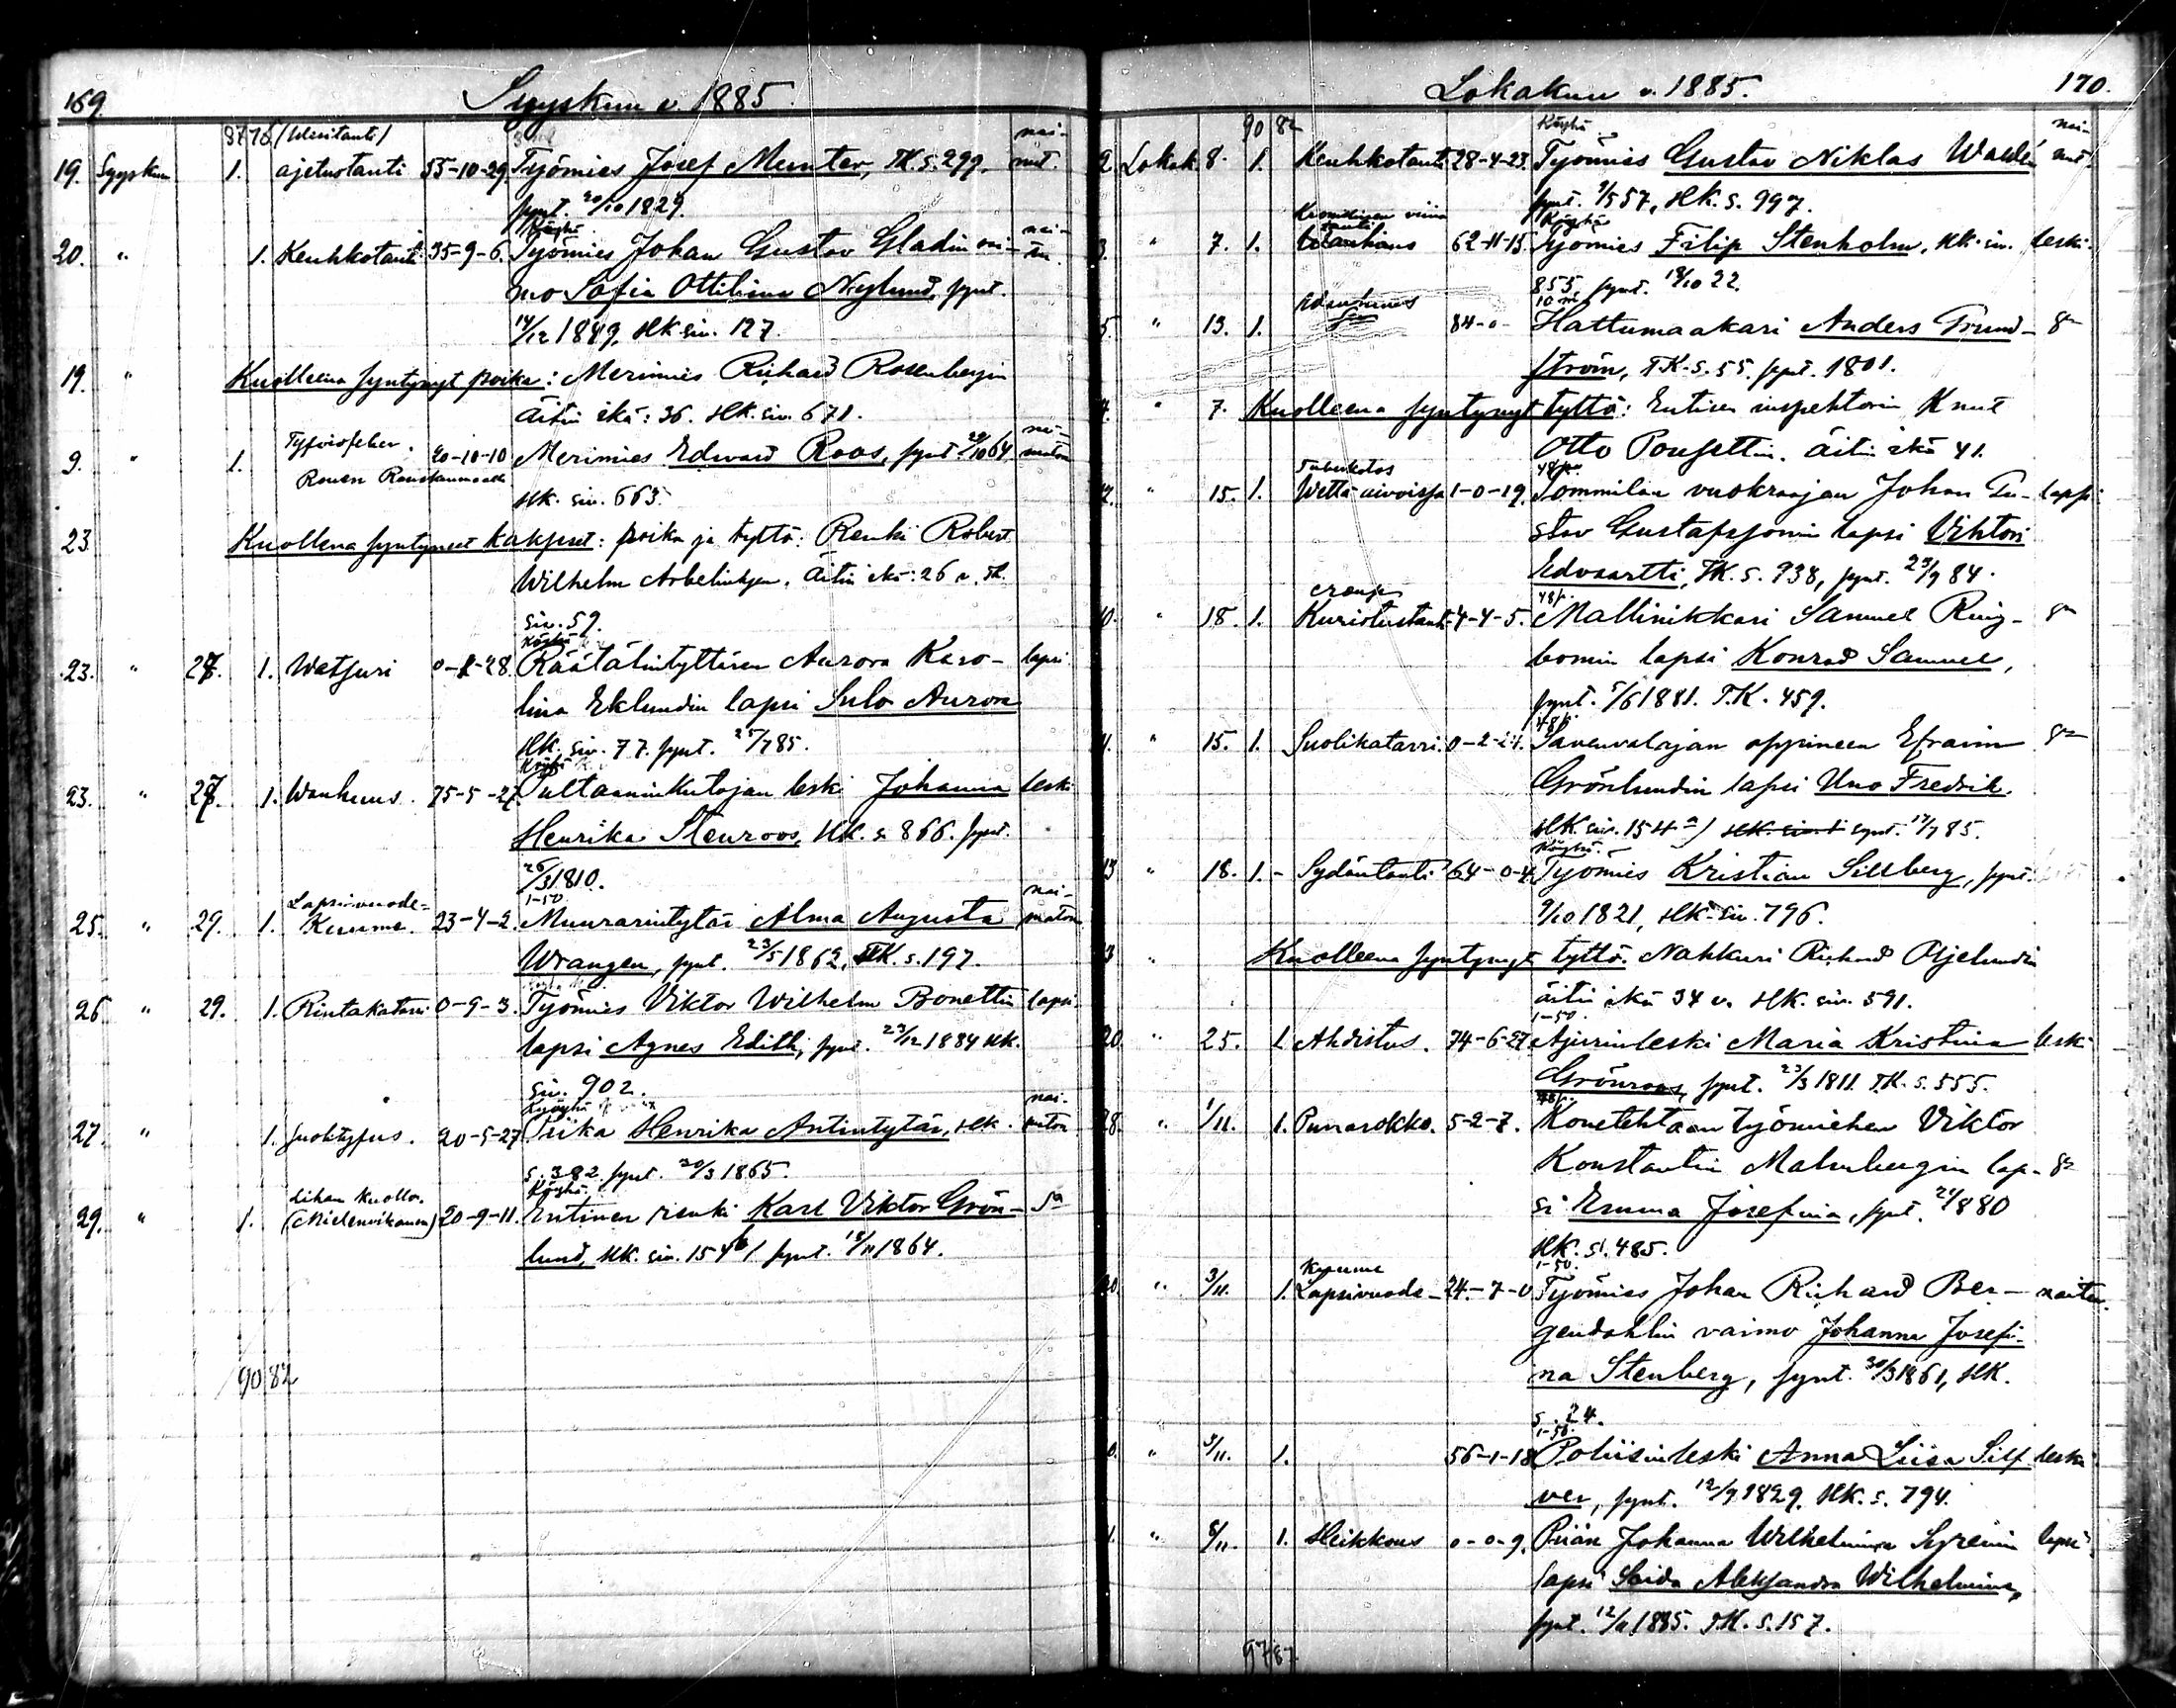 169.
Syyskuu v. 1885.
87 76 (Wesitauti)
19. Syyskuu 1. ajetustauti 55-10-29. Työmies Josef Munter, TK. s. 299. nai-nut.
synt. 20/10 1829.
Köyhä
20. " 1. Keuhkotauti 35-9-6. Työmies Johan Gustav Gladin vai- nai-tu.
mo Sofia Ottiliana Nylund, synt.
14/12 1849, HK. siv. 127.
19. " Kuolleena syntynyt poika: Merimies Richard Rosenbergin
Äitin ikä: 36. HK. siv. 671.
9. " 1. Tyfoisfeber. 20-10-10 Merimies Edward Roos, synt. 29/10 64. nai-maton
Rouen Ranskanmaalla
HK. siv. 663.
23. Kuollena syntyneet kaksoset: poika ja tyttö: Renki Robert
Wilhelm Arbelinksen. Äitin ikä: 26 v. TK.
siv. 59.
Köyhä
23. " 27. 1. Watsuri 0-1-28. Räätälintyttären Aurora Karo- lapsi
lina Eklundin lapsi Sulo Aurora
HK. siv. 77. synt. 25/7 85.
Köyhä
23. " 27. 1. Wanhuus. 75-5-27. Pultaaninkutojan leski Johanna leski
Henrika Stenroos, HK. s. 866. synt.
26/3 1810.
1-50
25. " 29. 1. Lapsivuode-Kuume. 23-4-2. Muurarintytär Alma Augusta nai-maton
Wrangen, synt. 23/5 1862, TK. s. 197.
26. " 29. 1. Rintakatarri 0-9-3. Työmies Viktor Wilhelm Bonettin lapsi
lapsi Agnes Edith, synt. 23/12 1884 HK.
siv. 902.
Köyhä
27. " 1. Suolityfus. 20-5-27. Piika Henrika Antintytär, HK. nai-maton
s. 382. synt. 20/3 1865.
Köyhä.
29. " 1. Lihan kuollo. (Mielenvikanen) 20-9-11. Entinen renki Karl Viktor Grön- sa
lund, HK. siv. 154 b/. synt. 18/11 1864.
90 82
170.
Lokakuu v. 1885.
90 82
Köyhä
2. Lokak. 8. 1. Keuhkotauti 28-4-23. Työmies Gustav Niklas Walden nai-nut.
synt. 9/5 57, HK. s. 997.
Kroonillinen viina tauti Köyhä
3. " 7. 1. 62-11-15. Työmies Filip Stenholm, HK. siv. leski.
855, synt. 18/10 22.
5. " 13. 1. Wanhuus 84-0- Hattumaakari Anders Trund- sa
ström, TK. s. 55. synt. 1801.
7. " 7. Kuolleena syntynyt tyttö: Entisen inspehtorin Knut
Otto Pousettin. äitin ikä 41.
Tuberkolos 48 p.
12. " 15. 1. Wettä aivoissa 1-0-19. Tommilan vuokraajan Johan Gu- lapsi
stav Gustafssonin lapsi Vihtori
Edvartti, TK. s. 938, synt. 23/9 84.
croup 48 p.
10. " 18. 1. Kuristustauti 4-4-5. Mallinikkari Samuel Ring- sa
bomin lapsi Konrad Samuel,
synt. 5/6 1881. TK. 459.
48 p.
11. " 15. 1. Suolikatarri. 0-2-24. Savenvalajan oppineen Efraim sa
Grönlundin lapsi Uno Fredrik.
HK. siv. 154 a/ HK. siv. synt. 17/7 85.
Köyhä.
13 " 18. 1. Sydäntauti 64-0-4. Työmies Kristian Sillberg, synt.
9/10 1821, HK. siv. 796.
" Kuolleena syntynyt tyttö. Nahkuri Richard Öljelundin
äitin ikä 34 v. HK. siv. 591.
1-50.
20. " 25. 1. Ahdistus. 74-6-27. Ajurinleski Maria Kristina leski
Grönroos, synt. 23/3 1811. TK. s. 555.
48 p.
28. " 1/11. 1. Punarokko. 5-2-7. Konetehtaan työmiehen Viktor
Konstantin Malmbergin lap- sa
si Emma Josefina, synt. 21/8 80
HK. s. 485.
1-50.
30. " 3/11. 1. Lapsivuode- kuume 24-7-0 Työmies Johan Richard Ber- naitu.
gendahlin vaimo Johanna Josefi-
na Stenberg, synt. 30/3 1861, HK.
s. 24.
1-50.
" 3/11. 1. 56-1-18 Poliisinleski Anna Liisa Silf- leski
ver, synt. 12/9 1829. HK. s. 794.
" 8/11. 1. Heikkous 0-0-9. Piian Johanna Wilhelmina Syrenin lapsi
lapsi Saida Aleksandra Wilhelmina,
synt. 1885. TK. s. 157.
97 87